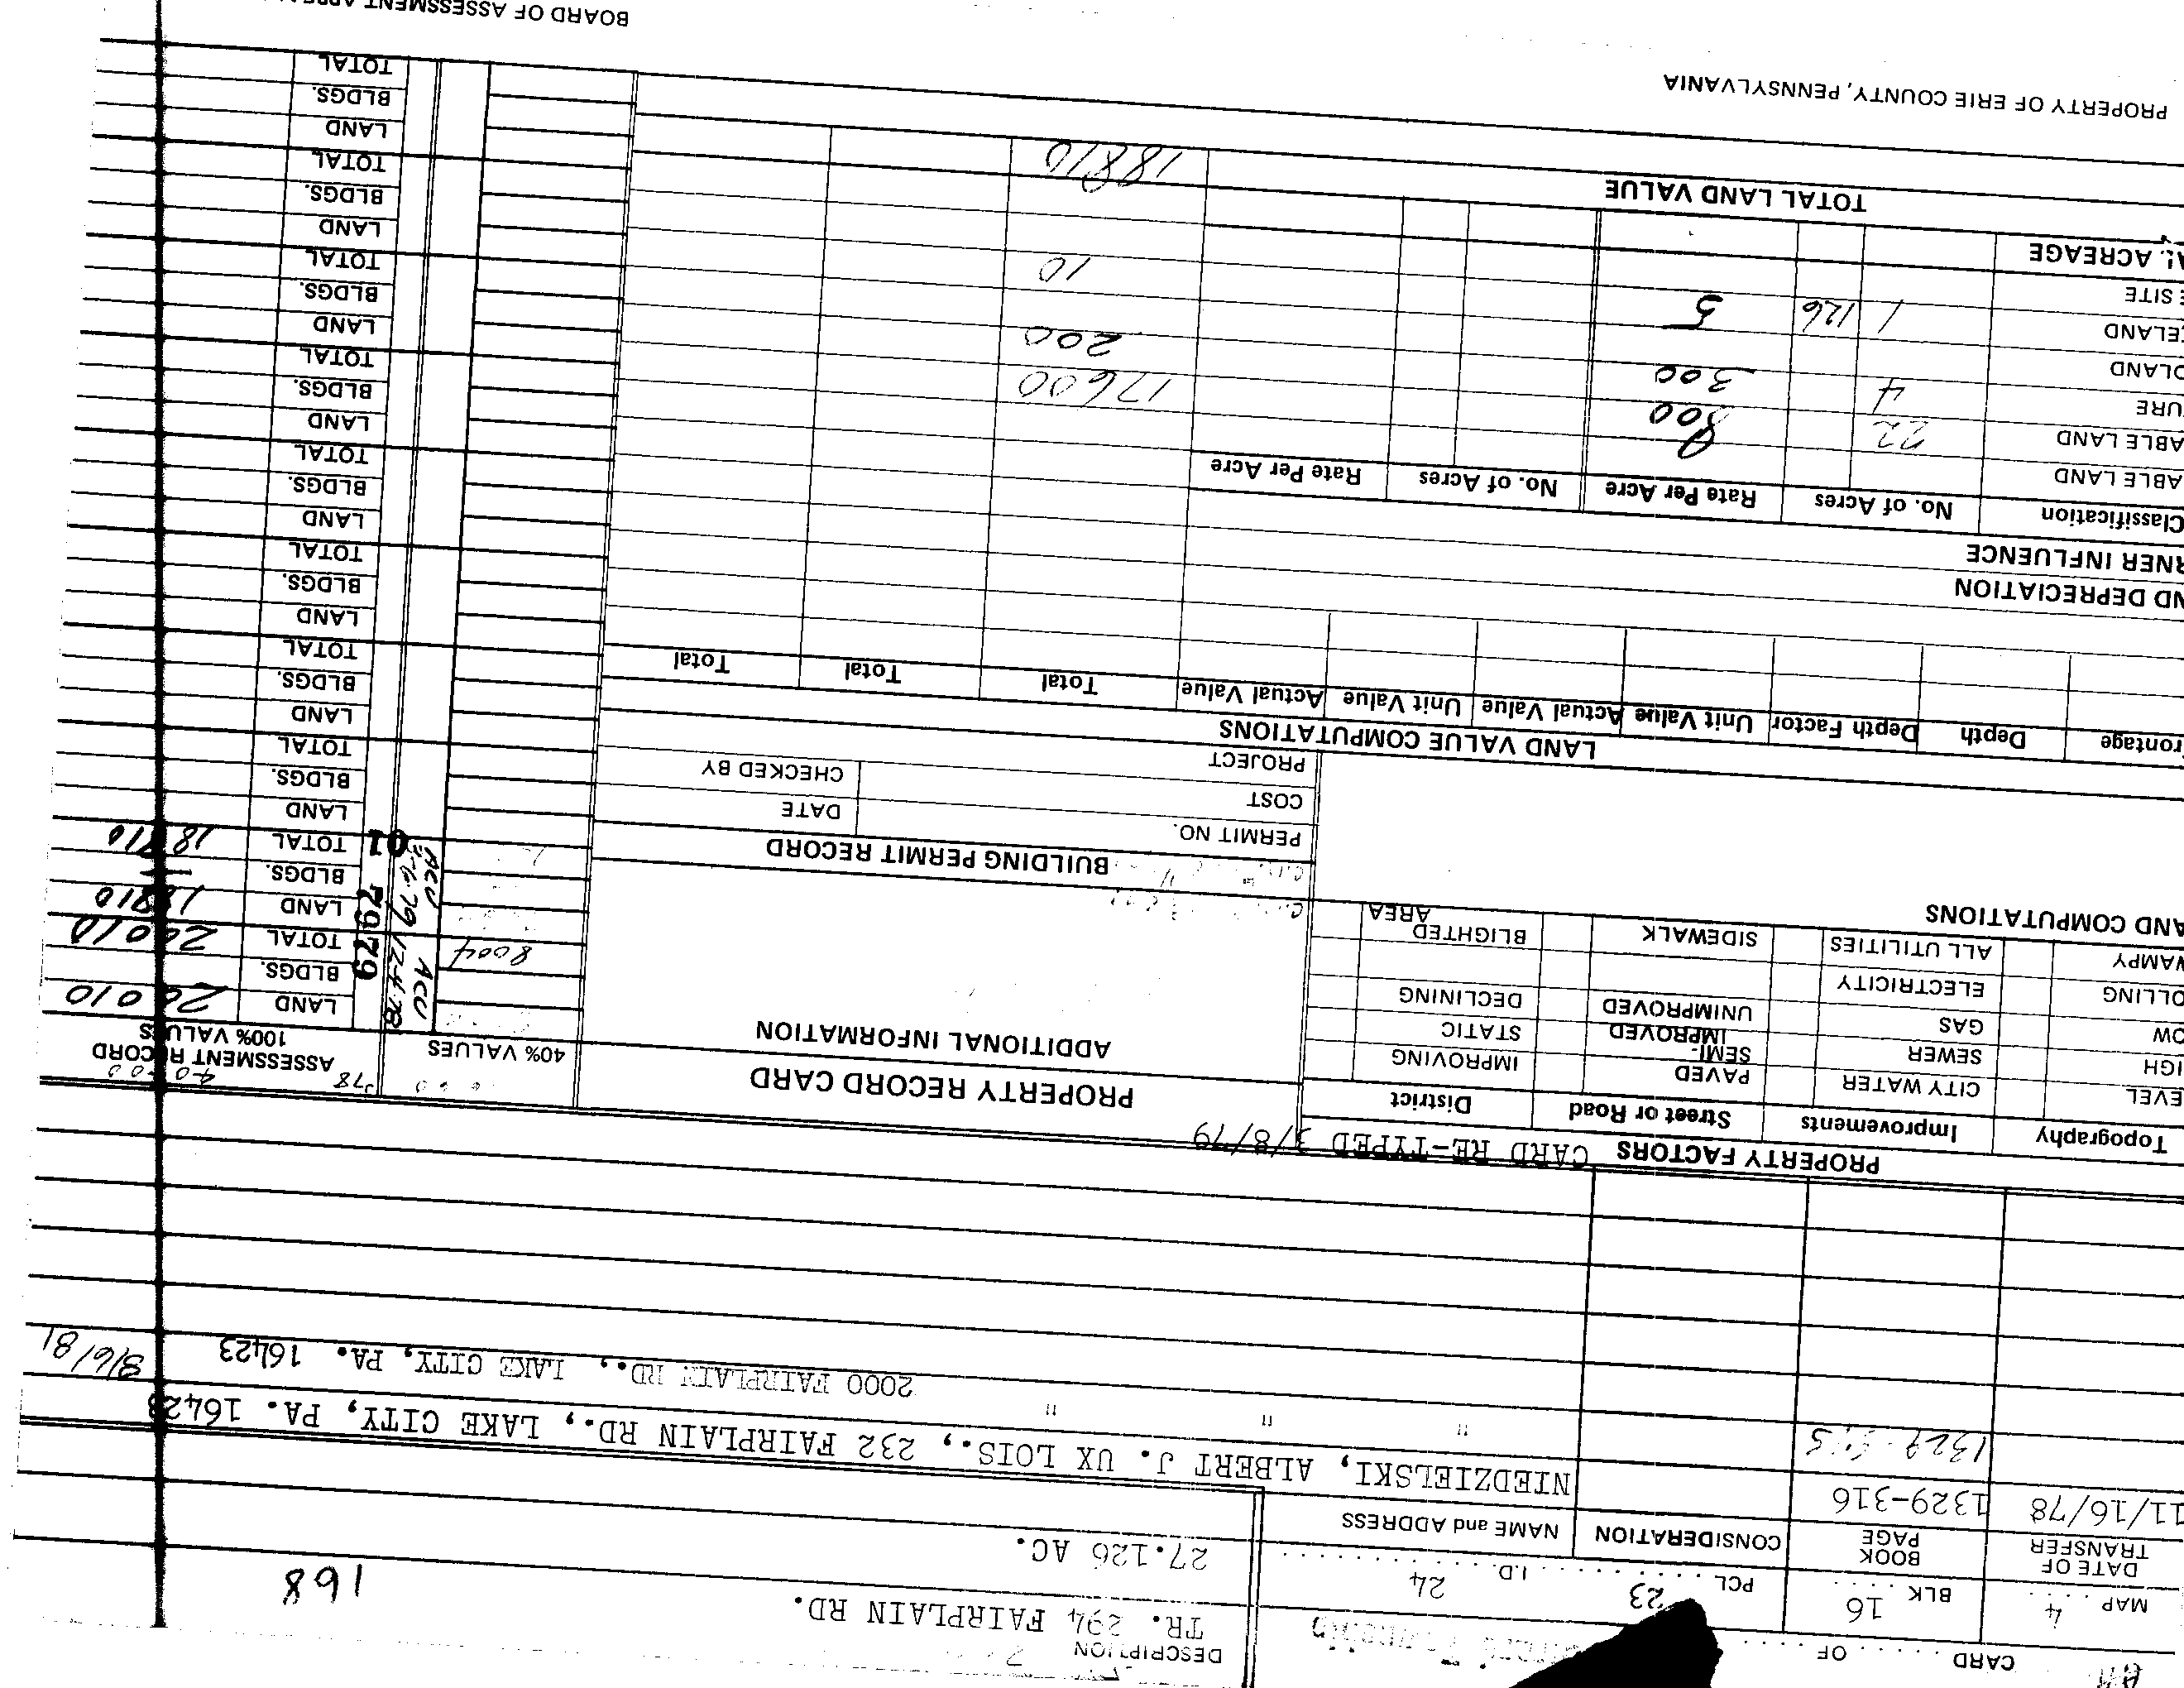 CARD . . . . . . OF
MAP . . . 4 BLK . . . 16 PCL . . . 23 . . . I.D. . . . 24
DESCRIPTION
TR. 294 FAIRPLAIN RD.
27.126 AC.
168
DATE OF TRANSFER BOOK PAGE CONSIDERATION NAME and ADDRESS
11/16/78 1329-316 NIEDZIELSKI, ALBERT J. UX LOIS., 232 FAIRPLAIN RD., LAKE CITY, PA. 16423
" " " 2000 FAIRPLAIN RD., LAKE CITY, PA. 16423 8/6/81
PROPERTY FACTORS CARD RE-TYPED 3/8/79
Topography Improvements Street or Road District
EVEL CITY WATER PAVED IMPROVING
IGH SEWER SEMI-IMPROVED STATIC
OW GAS UNIMPROVED DECLINING
OLLING ELECTRICITY
WAMPY ALL UTILITIES SIDEWALK BLIGHTED AREA
AND COMPUTATIONS
PROPERTY RECORD CARD
ADDITIONAL INFORMATION
BUILDING PERMIT RECORD
PERMIT NO. DATE
COST CHECKED BY
PROJECT
40% VALUES
8004
'78
ASSESSMENT RECORD
100% VALUES
ACV
12-4-78
ACV
7979
01
LAND 20010
BLDGS.
TOTAL 20010
LAND 18810
BLDGS.
TOTAL
LAND
BLDGS.
TOTAL
LAND
BLDGS.
TOTAL
LAND
BLDGS.
TOTAL
LAND
BLDGS.
TOTAL
LAND
BLDGS.
TOTAL
LAND
BLDGS.
TOTAL
LAND
BLDGS.
TOTAL
LAND
BLDGS.
TOTAL
LAND VALUE COMPUTATIONS
rontage Depth Depth Factor Unit Value Actual Value Unit Value Actual Value Total Total Total
ND DEPRECIATION
RNER INFLUENCE
Classification No. of Acres Rate Per Acre No. of Acres Rate Per Acre
ABLE LAND
ABLE LAND 22 800 17600
URE 4 300 200
DLAND
ELAND 1 126 5 10
E SITE
AL ACREAGE
TOTAL LAND VALUE 18810
PROPERTY OF ERIE COUNTY, PENNSYLVANIA
BOARD OF ASSESSMENT